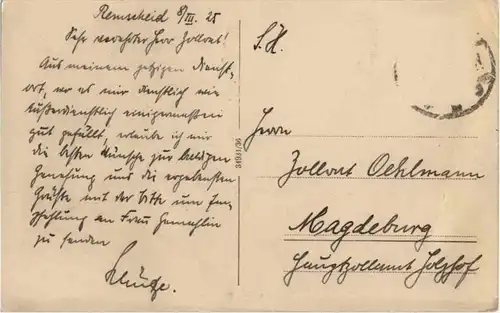 Remscheid 8/III. 25
Sehr verehrter Herr Zollrat!
Aus meinem jetzigen Dienst-
ort, wo es mir dienstlich wie
außerdienstlich einigermaßen
gut gefällt, erlaube ich mir
die besten Wünsche zur baldigen
Genesung und die ergebensten
Grüße mit der Bitte um Em-
pfehlung an Frau Gemahlin
zu senden
349/1/36
S. H.
Herrn
Zollrat Oehlmann
Magdeburg
Hauptzollamt Holzhof